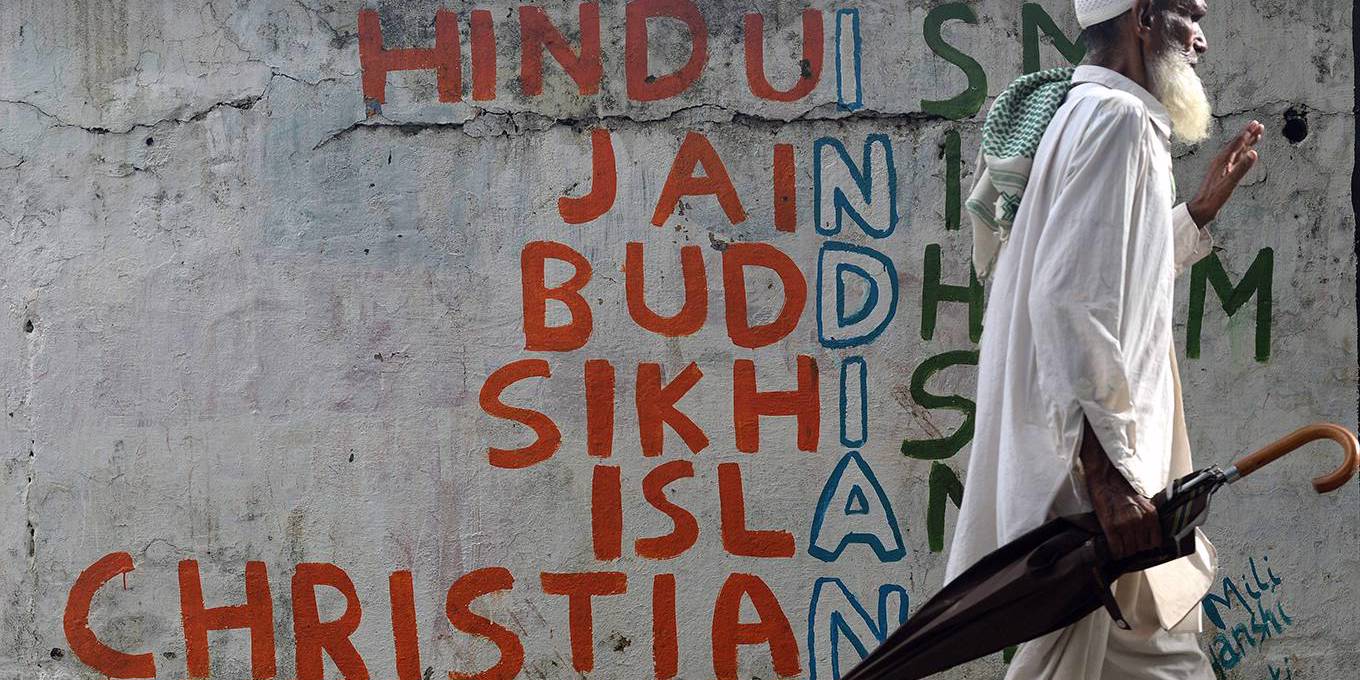 HINDUISM
JAINI
BUDDH M
SIKHIS
ISLAM
CHRISTIAN
Mili